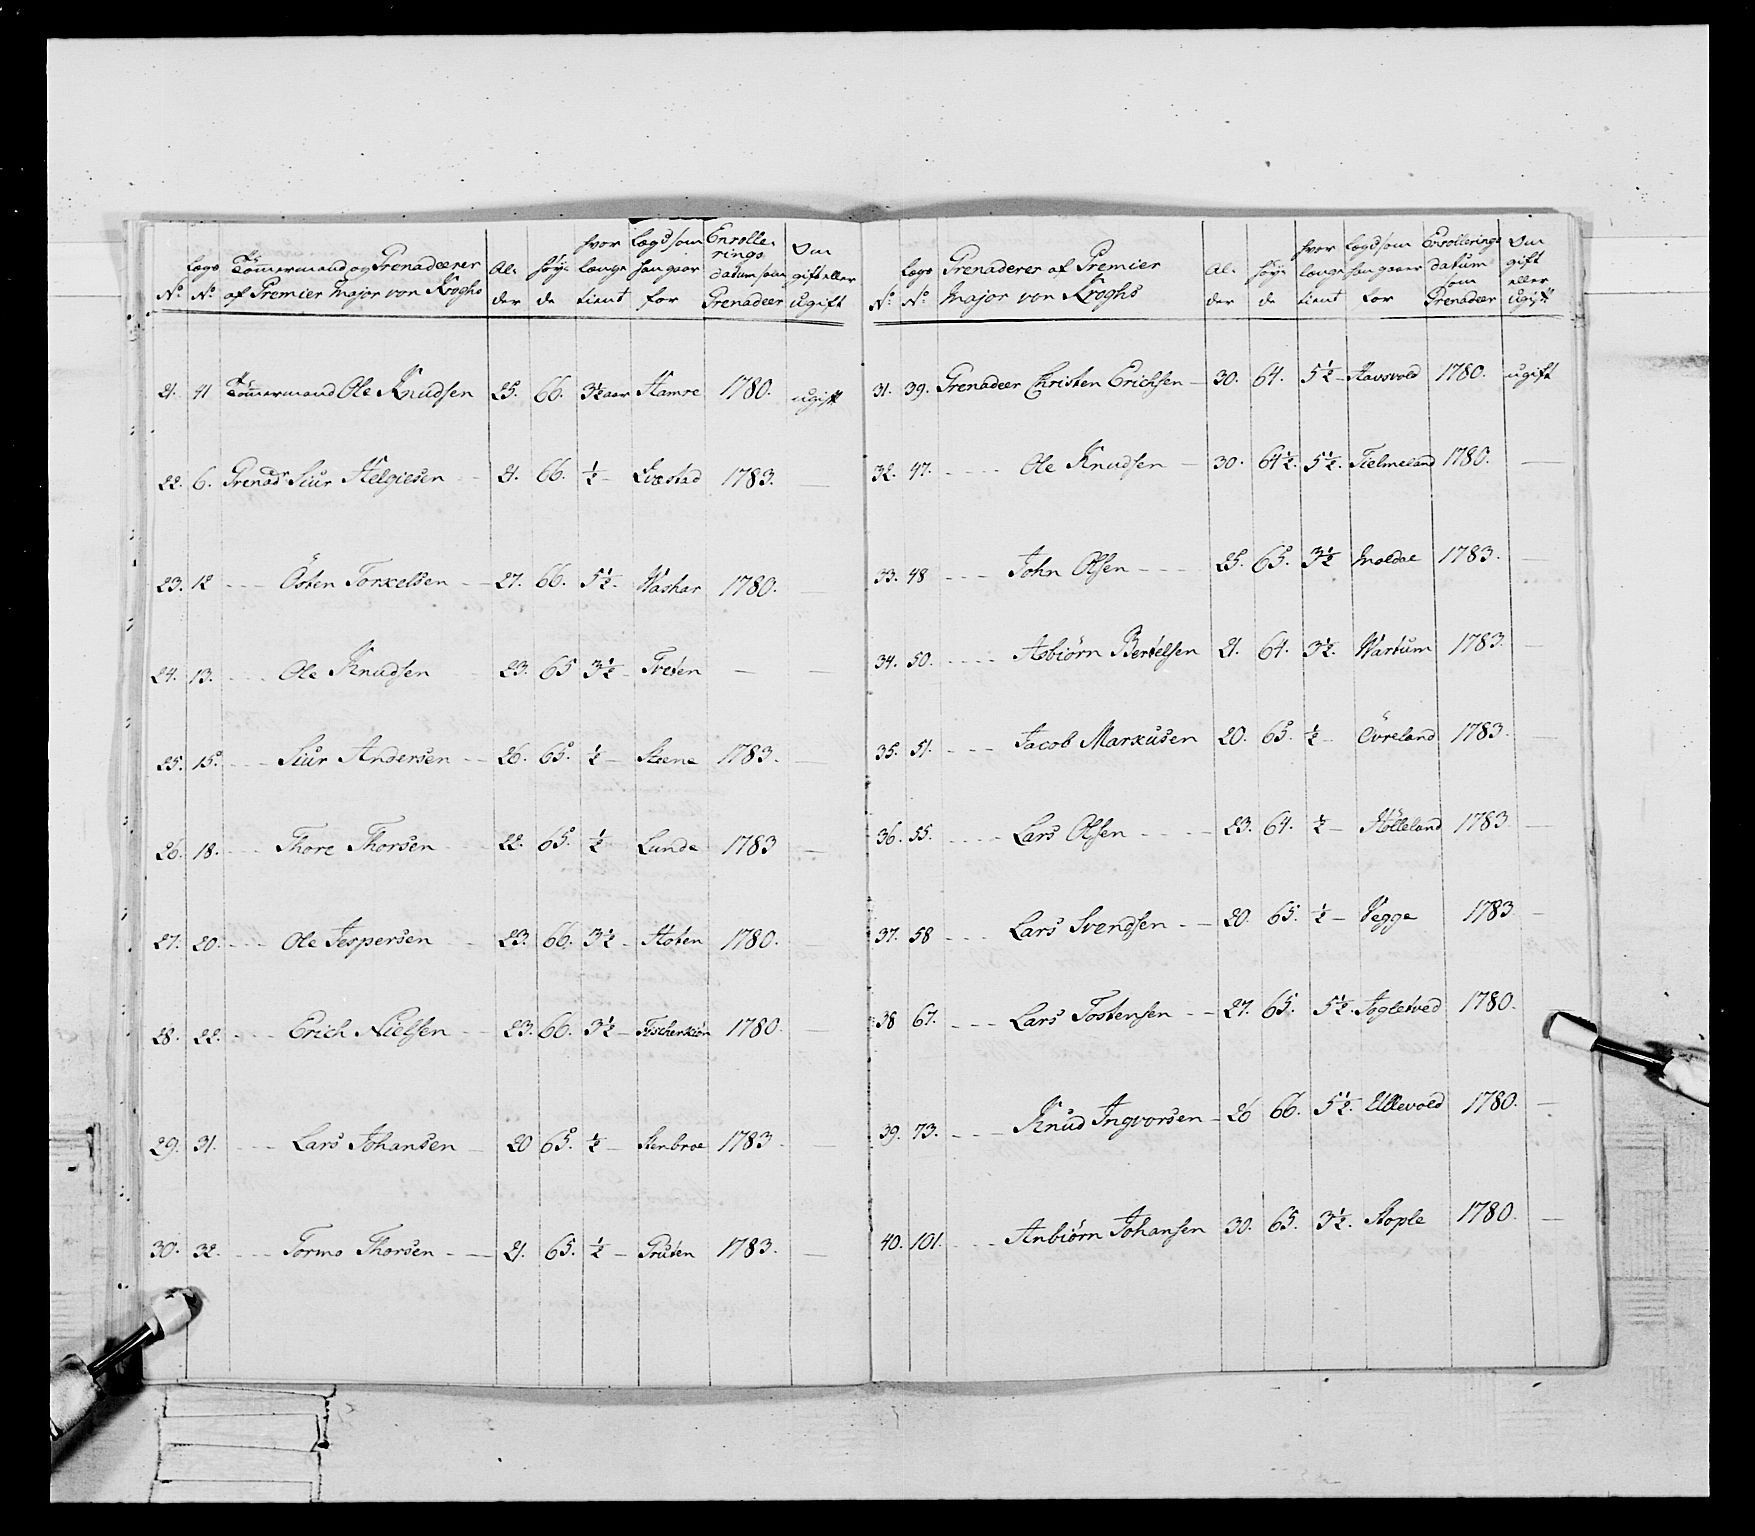 N: Lægs N: Tömermand og Grenadeerer af Premier Major von Kroghs Alder Høyede hvor længe tient Lægd som han gaar for Enrollerings datum som Grenadeer Om gift eller ugift
21. 41 Tömermand Ole Knudsen 25. 66. 3½ aar Hamre 1780. ugift
22. 6. Grenadr Siur Helgiesen 21. 66. ½ – 1783. —
23. 12 Östen Torkelsen — 27. 66. 5½ – 1780. —
24. 13. Ole Knudsen 23. 65 3½ – Tveten — —
25. 15. Siur Andersen 26. 65. ½ – Steene 1783. —
26. 18. Thore Thorsen 22. 65. ½ Lunde 1783 —
27. 20. Ole Jespersen 23. 66. 3½ – 1780. —
28. 22. Erich Nielsen 23. 66. 3½ – 1780.
29. 31. Lars Johansen – 20 65. ½ – Stenbroe 1783. —
30. 32. Tormo Thorsen — 21. 65. ½ – Gruten 1783. —
N: Lægs N: Grenaderer af Premier Major von Kroghs Alder Høyede hvor længe tient Lægd som han gaaer for Enrollerings datum som Grenadeer Om gift eller ugift
31. 39. Grenadeer Christen Erichsen – 30. 64. 5½ – 1780. ugift
32. 47. Ole Knudsen — 30. 64½. 5½. Tielmeland 1780. —
33. 48 John Olsen 25. 65. 3½ Moldae 1783. —
34. 50. Asbiörn Bertelsen 21. 64. 3½. 1783. —
35. 51. Jacob Markusen 20. 65. ½ – Övreland 1783. —
36. 55. Lars Olsen 23. 64. ½ – Hölleland 1783 —
37. 58 Lars Svendsen 20. 65. ½ – Vegge 1783 —
38 67. Lars Tostensen 27. 65. 5½. Fogletved 1780. —
39. 73. Knud Ingvorsen – 26 66. 5½. Ullevold 1780. —
40. 101. Anbiörn Johansen 30. 65. 3½. Stople 1780. —